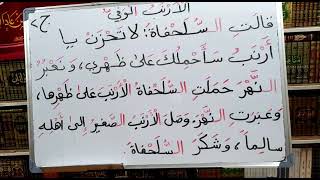 الأَرْنَبُ الوَفِيُّ ج٢
قَالَتِ السُّلَحْفَاةُ: لَا تَحْزَنْ يَا
أَرْنَبُ سَأَحْمِلُكَ عَلَى ظَهْرِي، وَنَعْبُرُ
النَّهْرَ حَمَلَتِ السُّلَحْفَاةُ الأَرْنَبَ عَلَى ظَهْرِهَا،
وَعَبَرَتِ النَّهْرَ، وَصَلَ الأَرْنَبُ الصَّغِيرُ إِلَى أَهْلِهِ
سَالِماً، وَشَكَرَ السُّلَحْفَاةَ.